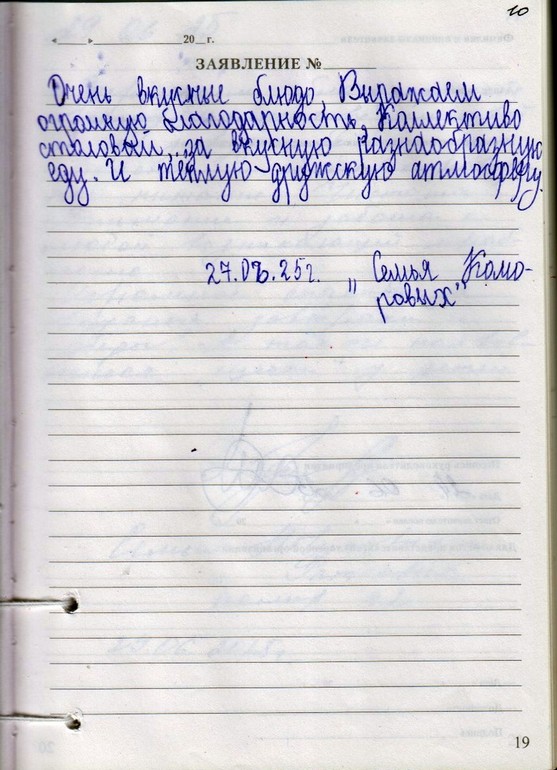 10
«____» ____________ 20__ г.
ЗАЯВЛЕНИЕ №_______
Очень вкусные блюдо, Выражаем
огромную благодарность, Коллективо
столовой, за вкусную разнаобразную
еду. И тёплую дружскую атмосферу.
27.07.25г. „ Семья Комо-
ровых"
19